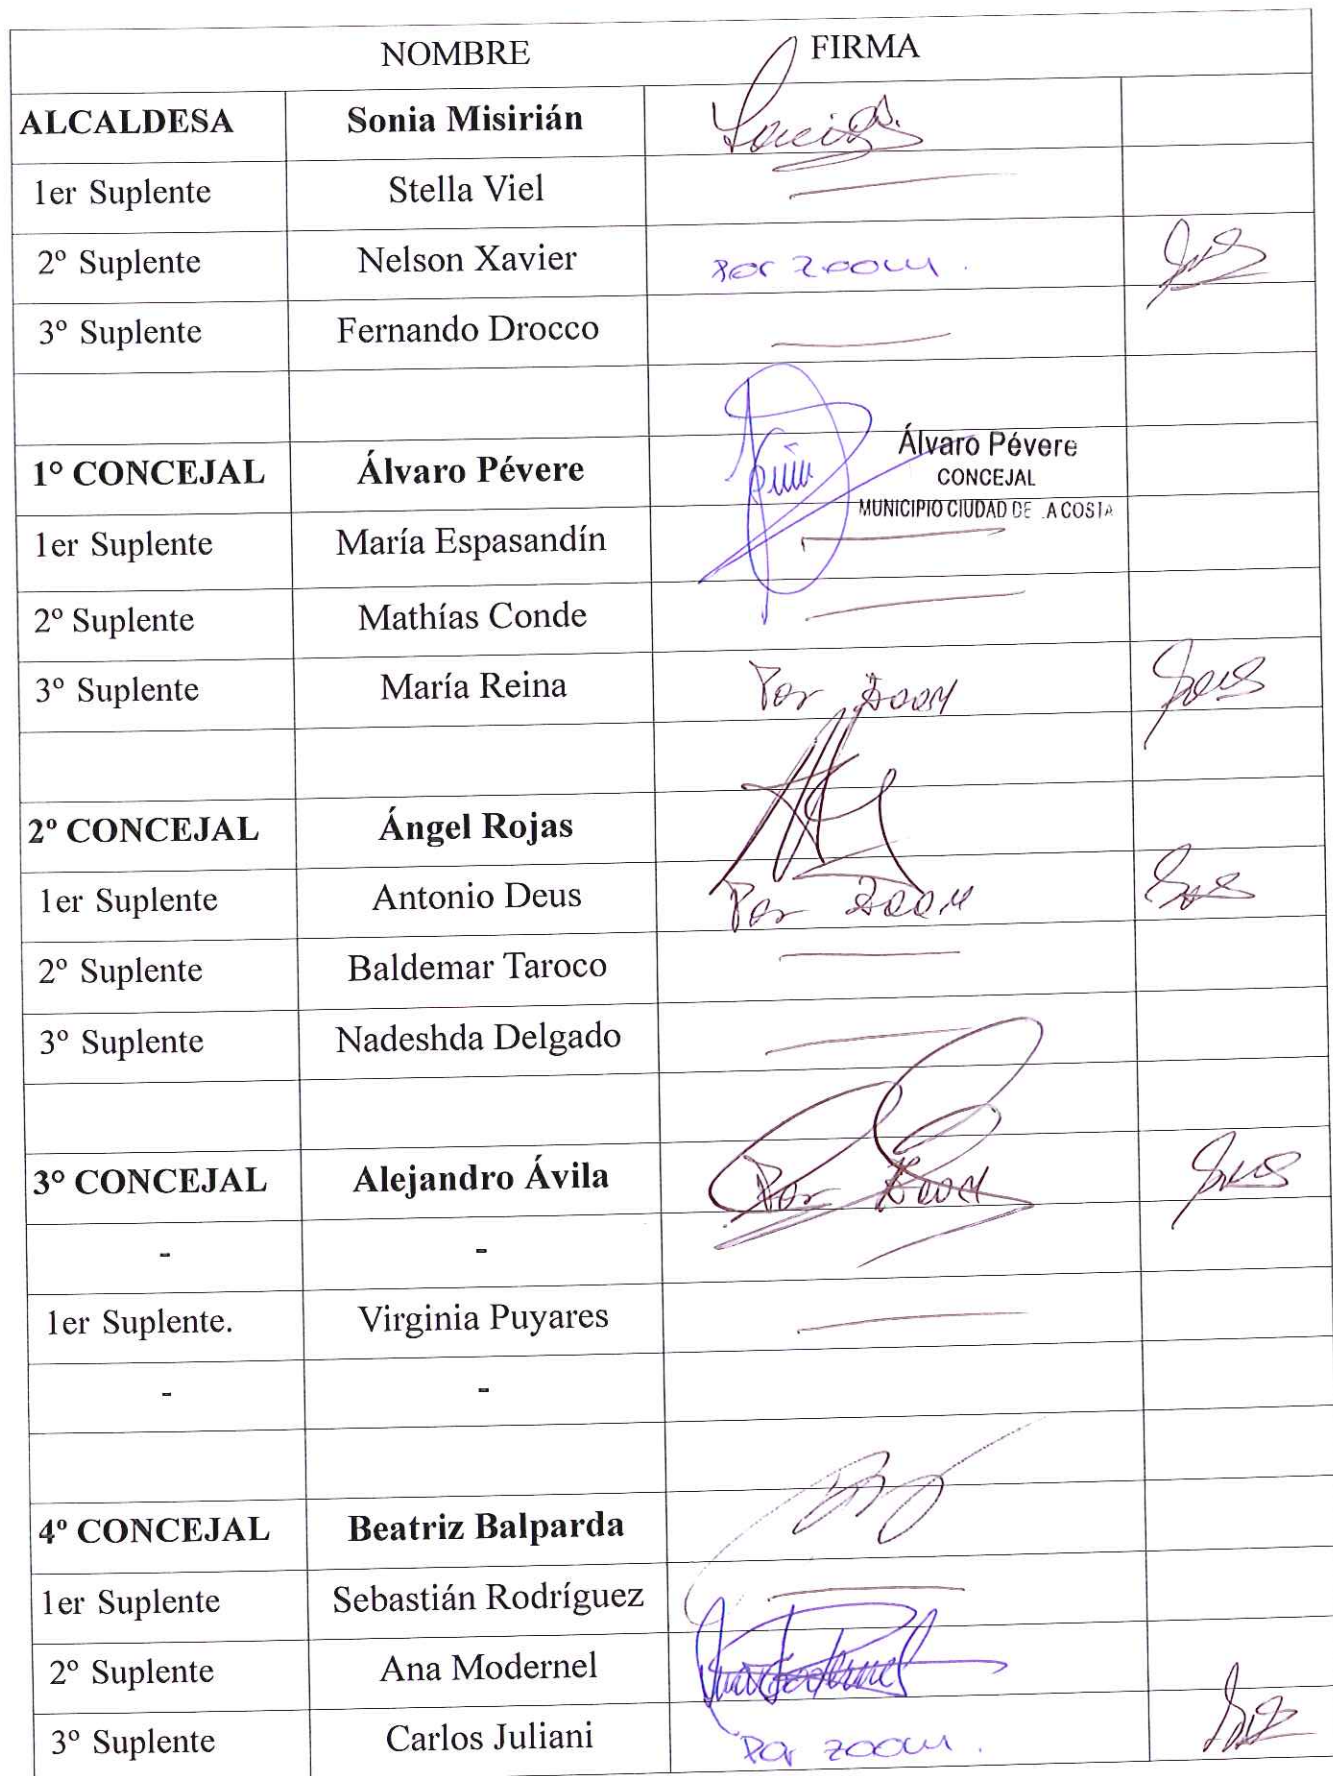 NOMBRE FIRMA
ALCALDESA Sonia Misirián
1er Suplente Stella Viel
2º Suplente Nelson Xavier Por zoom.
3º Suplente Fernando Drocco
1º CONCEJAL Álvaro Pévere Álvaro Pévere
CONCEJAL
MUNICIPIO CIUDAD DE LA COSTA
1er Suplente María Espasandín
2º Suplente Mathías Conde
3º Suplente María Reina Por Zoom
2º CONCEJAL Ángel Rojas
1er Suplente Antonio Deus Por Zoom
2º Suplente Baldemar Taroco
3º Suplente Nadeshda Delgado
3º CONCEJAL Alejandro Ávila Por Zoom
- -
1er Suplente. Virginia Puyares
- -
4º CONCEJAL Beatriz Balparda
1er Suplente Sebastián Rodríguez
2º Suplente Ana Modernel
3º Suplente Carlos Juliani Por zoom.